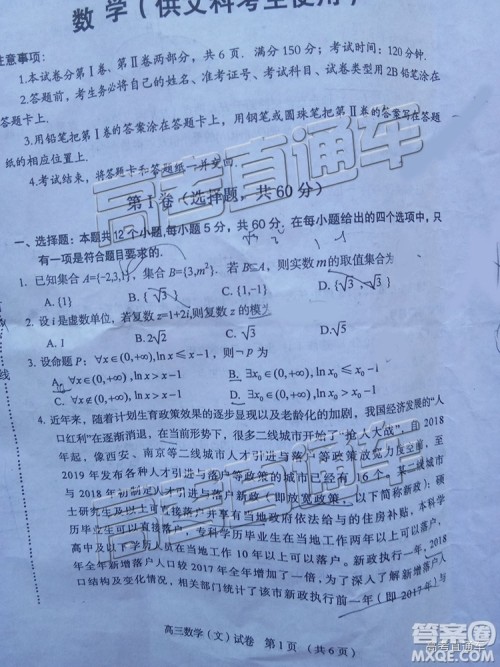 数学(供文科考生使用)
注意事项:
1.本试卷分第Ⅰ卷、第Ⅱ卷两部分,共6页.满分150分;考试时间:120分钟.
2.答题前,考生务必将自己的姓名、准考证号、考试科目、试卷类型用2B铅笔涂在
答题卡上.
3.用铅笔把第Ⅰ卷的答案涂在答题卡上,用钢笔或圆珠笔把第Ⅱ卷的答案写在答题
纸的相应位置上.
4.考试结束,将答题卡和答题纸一并交回.
第Ⅰ卷(选择题,共60分)
一、选择题:本题共12个小题,每小题5分,共60分.在每小题给出的四个选项中,只
有一项是符合题目要求的.
1. 已知集合A={-2,3,1},集合B={3,m²}.若B⊆A,则实数m的取值集合为
A. {1} B. {√3} C. {1,-1} D. {√3,-√3}
2. 设i是虚数单位,若复数z=1+2i,则复数z的模为
A. 1 B. 2√2 C. √3 D. √5
3. 设命题P:∀x∈(0,+∞),ln x≤x-1,则¬P为
A. ∀x∈(0,+∞),ln x>x-1 B. ∃x₀∈(0,+∞),ln x₀≤x₀-1
C. ∀x∉(0,+∞),ln x>x-1 D. ∃x₀∈(0,+∞),ln x₀>x₀-1
4. 近年来,随着计划生育政策效果的逐步显现以及老龄化的加剧,我国经济发展的“人
口红利”在逐渐消退,在当前形势下,很多二线城市开始了“抢人大战”,自2018
年起,像西安、南京等二线城市人才引进与落户等政策放宽力度空前,至
2019年发布各种人才引进与落户等政策的城市已经有16个.某二线城市
与2018年初制定人才引进与落户新政(即放宽政策,以下简称新政):硕
士研究生及以上可直接落户并享有当地政府依法给与的住房补贴,本科学
历毕业生可以直接落户,专科学历毕业生在当地工作两年以上可以落户.
高中及以下学历人员在当地工作10年以上可以落户.新政执行一年,2018
年全年新增落户人口较2017年全年增加了一倍,为了深入了解新增落户人
口结构及变化情况,相关部门统计了该市新政执行前一年(即2017年)与
线
高三数学(文)试卷 第1页 (共6页)
高考直通车
高考直通车
答案圈
MXQE.COM
高考直通车